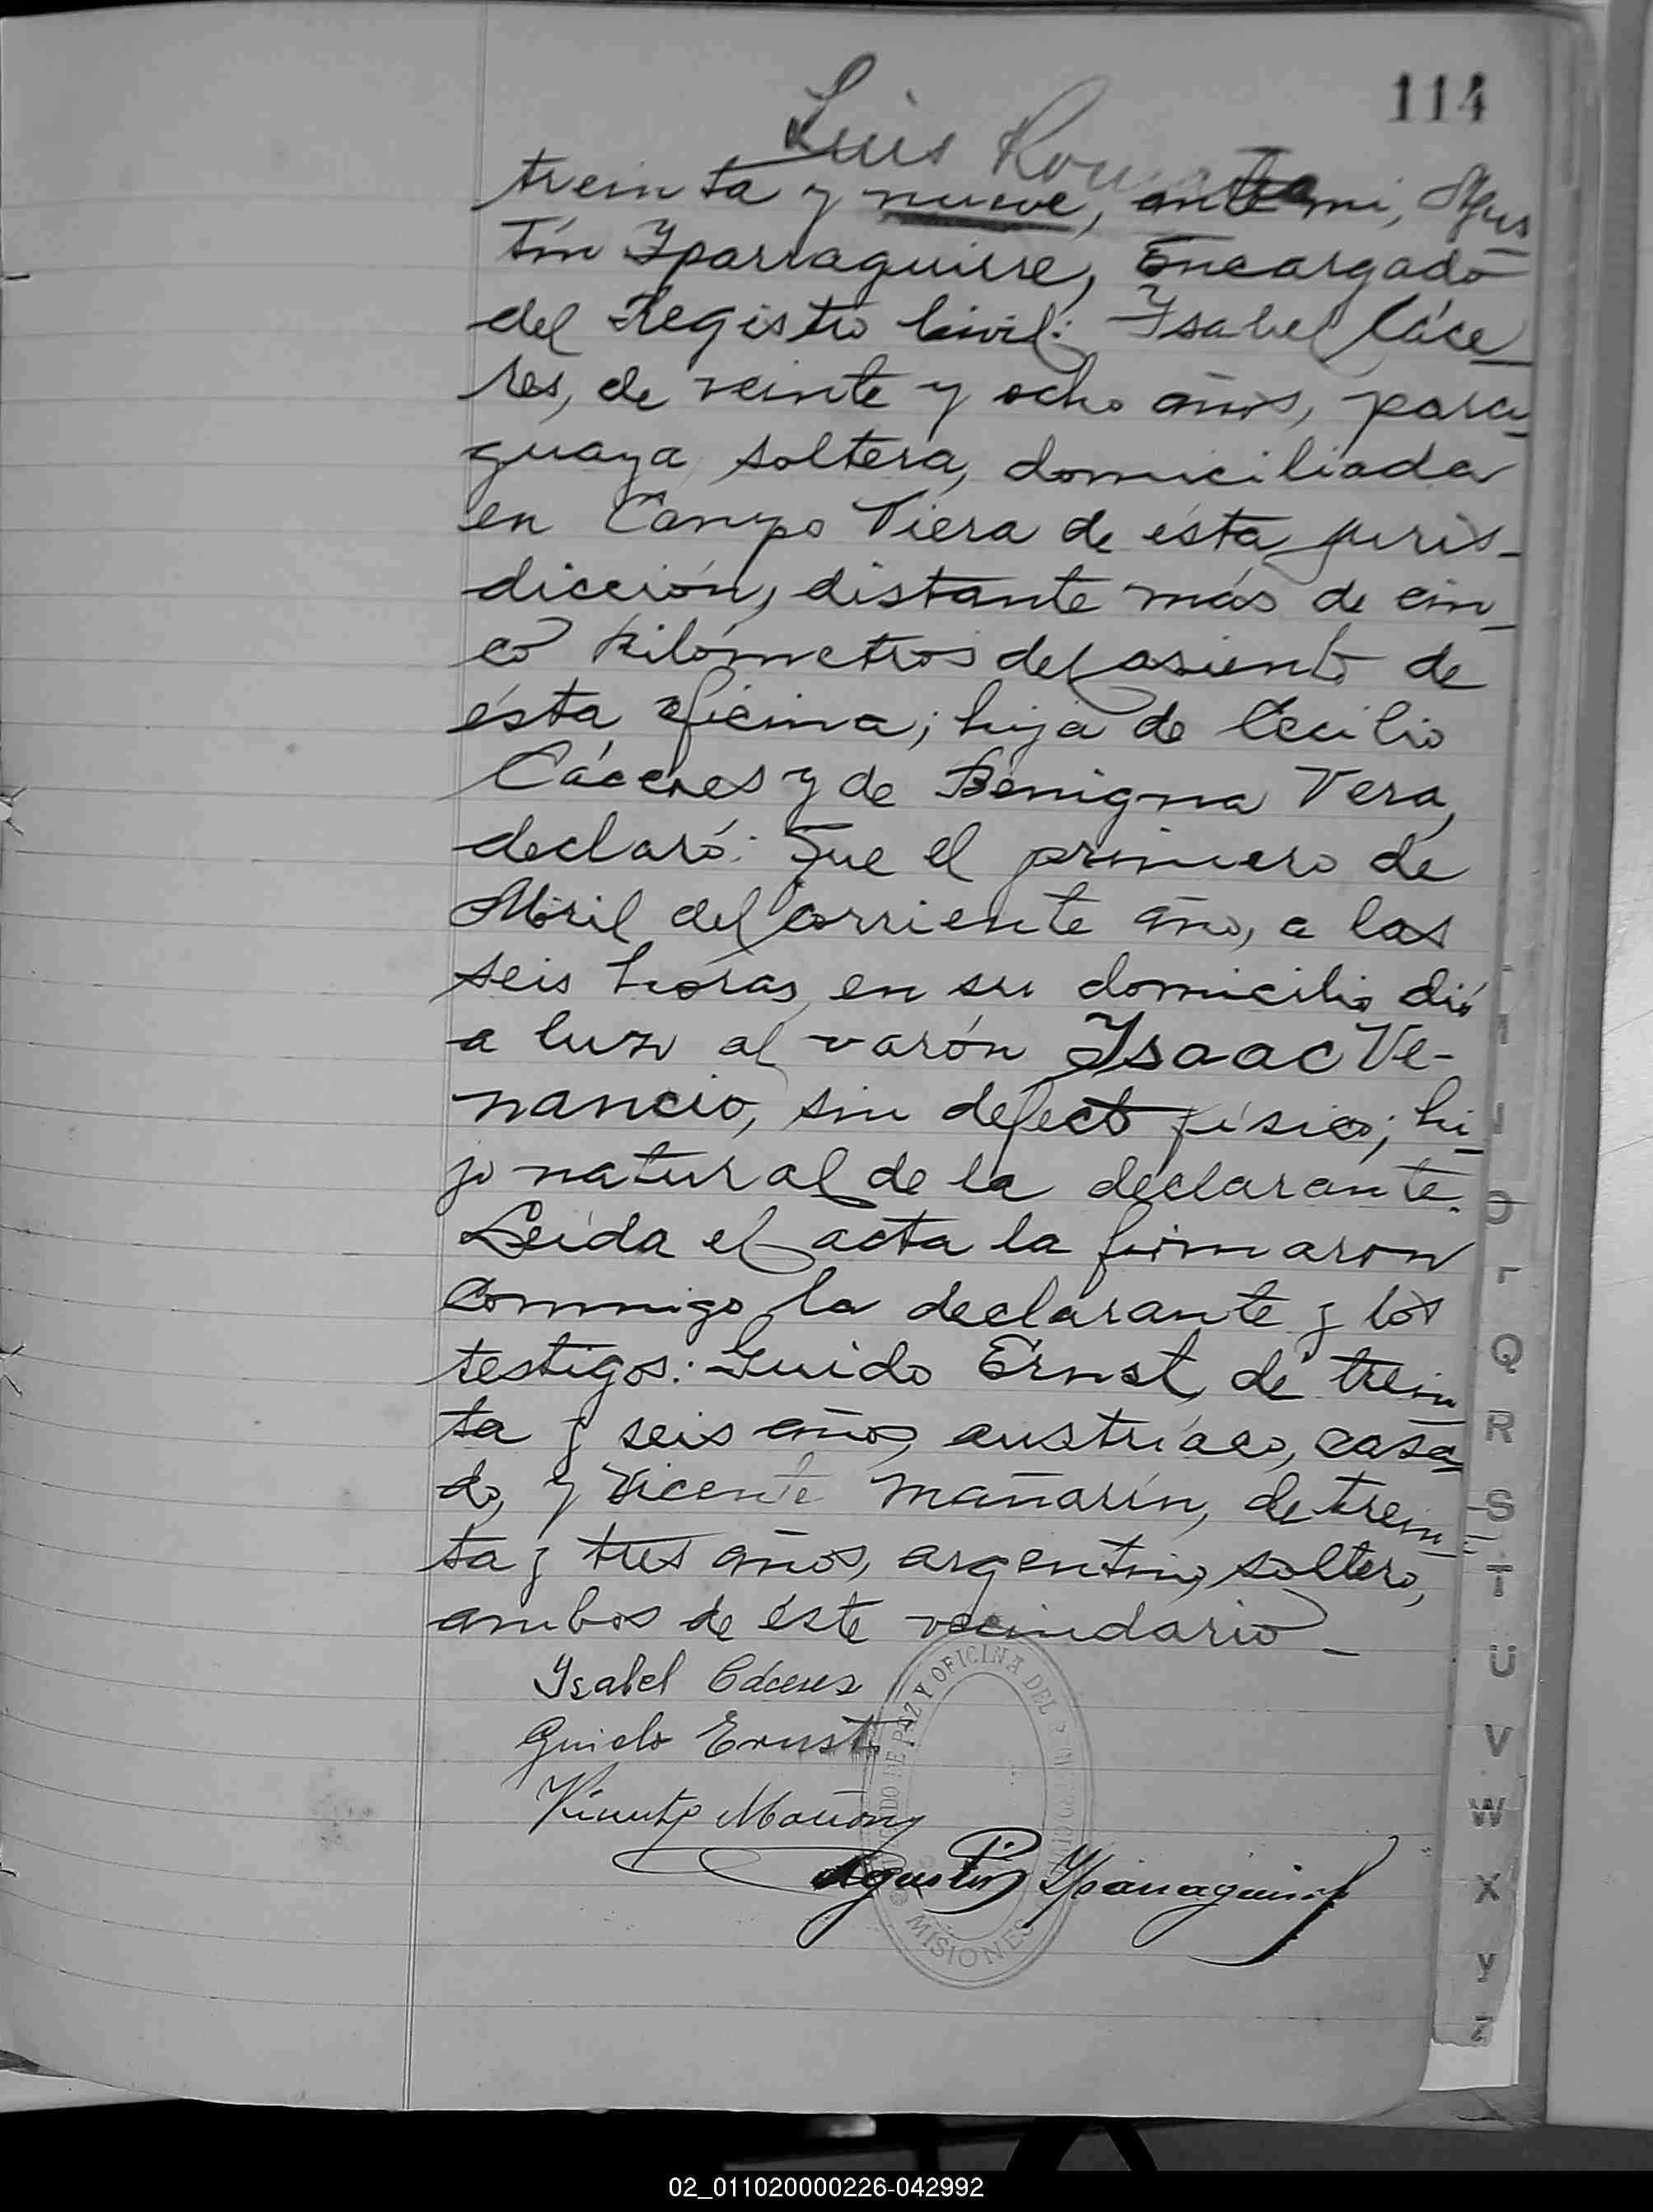 114
Luis
treinta y nueve, ante mi, Agus
tín Yparraguirre, Encargado
del Registro Civil: Ysabel Cáce_
res, de veinte y ocho años, para_
guaya, soltera, domiciliada
en Campo Viera de ésta juris-
dicción, distante más de cin_
co kilómetros del asiento de
ésta oficina; hija de Cecilio
Cáceres y de Benigna Vera,
declaró: Que el primero de
Abril del corriente año, a las
seis horas, en su domicilio dió
a luz al varón Ysaac Ve-
nancio, sin defecto físico; hi_
jo natural de la declarante.
Leída el acta la firmaron
conmigo la declarante y los
testigos: Guido Ernst, de trein_
ta y seis años, austríaco, casa_
do, y Vicente Mañarín, de trein_
ta y tres años, argentino, soltero,
ambos de éste vecindario_
Ysabel Cáceres
Guido Ernst
Agustín Yparraguirre
DE PAZ Y OFICINA DEL
MISIONES
Q
R
S
T
U
V
W
X
Y
Z
02_011020000226-042992